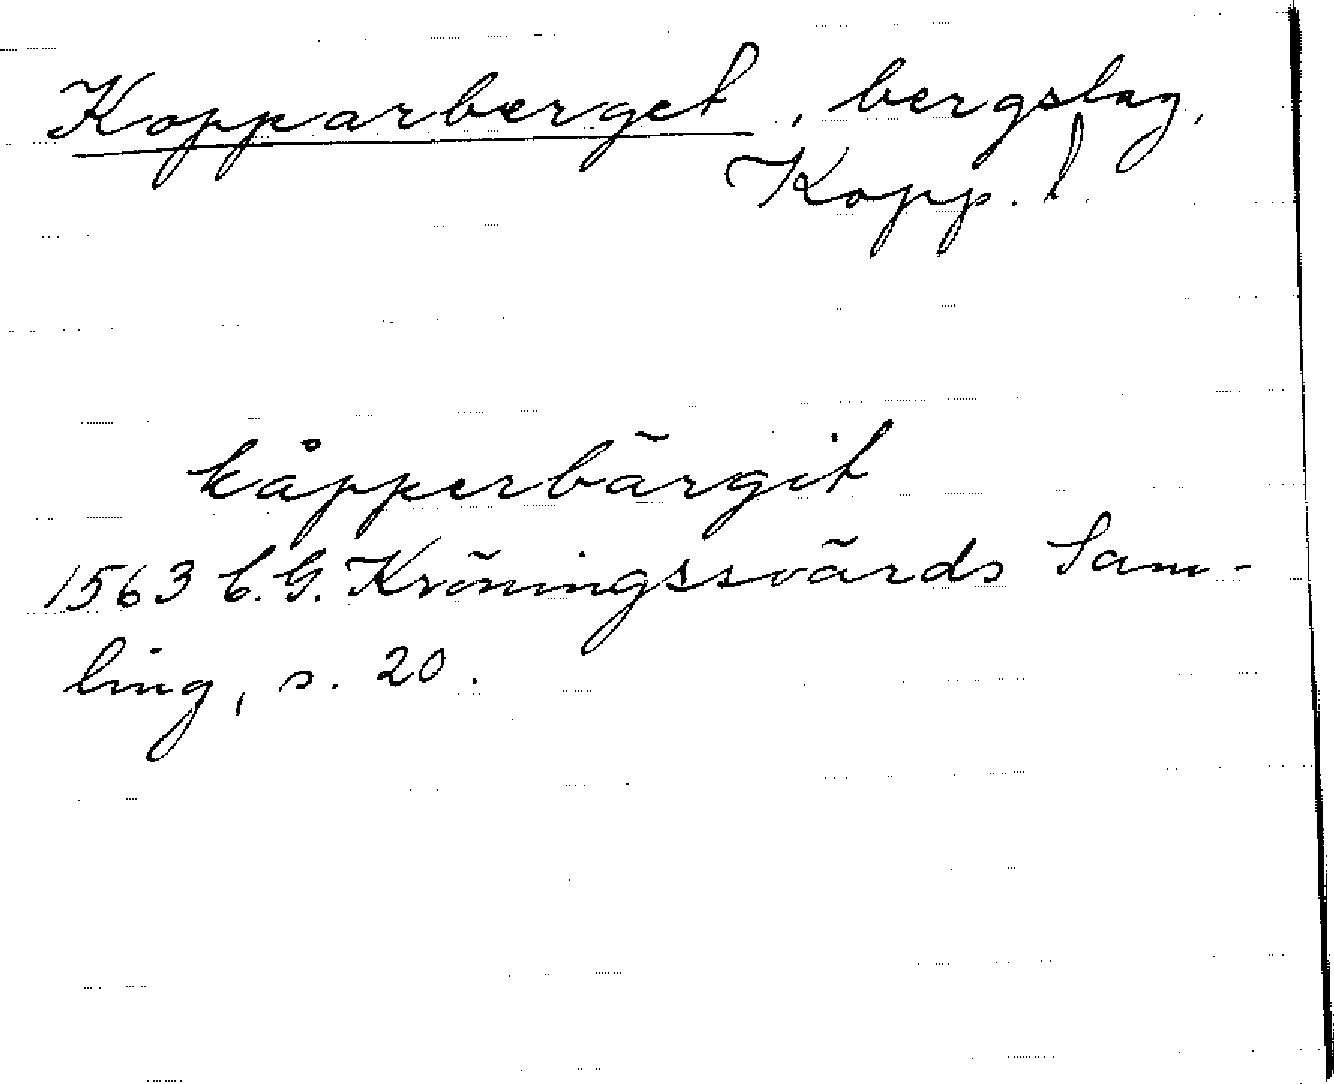 Kopparberget, bergslag,
Kopp. l.
kåpperbärgit
1563 C.G. Kröningssvärds Sam-
ling, s. 20.